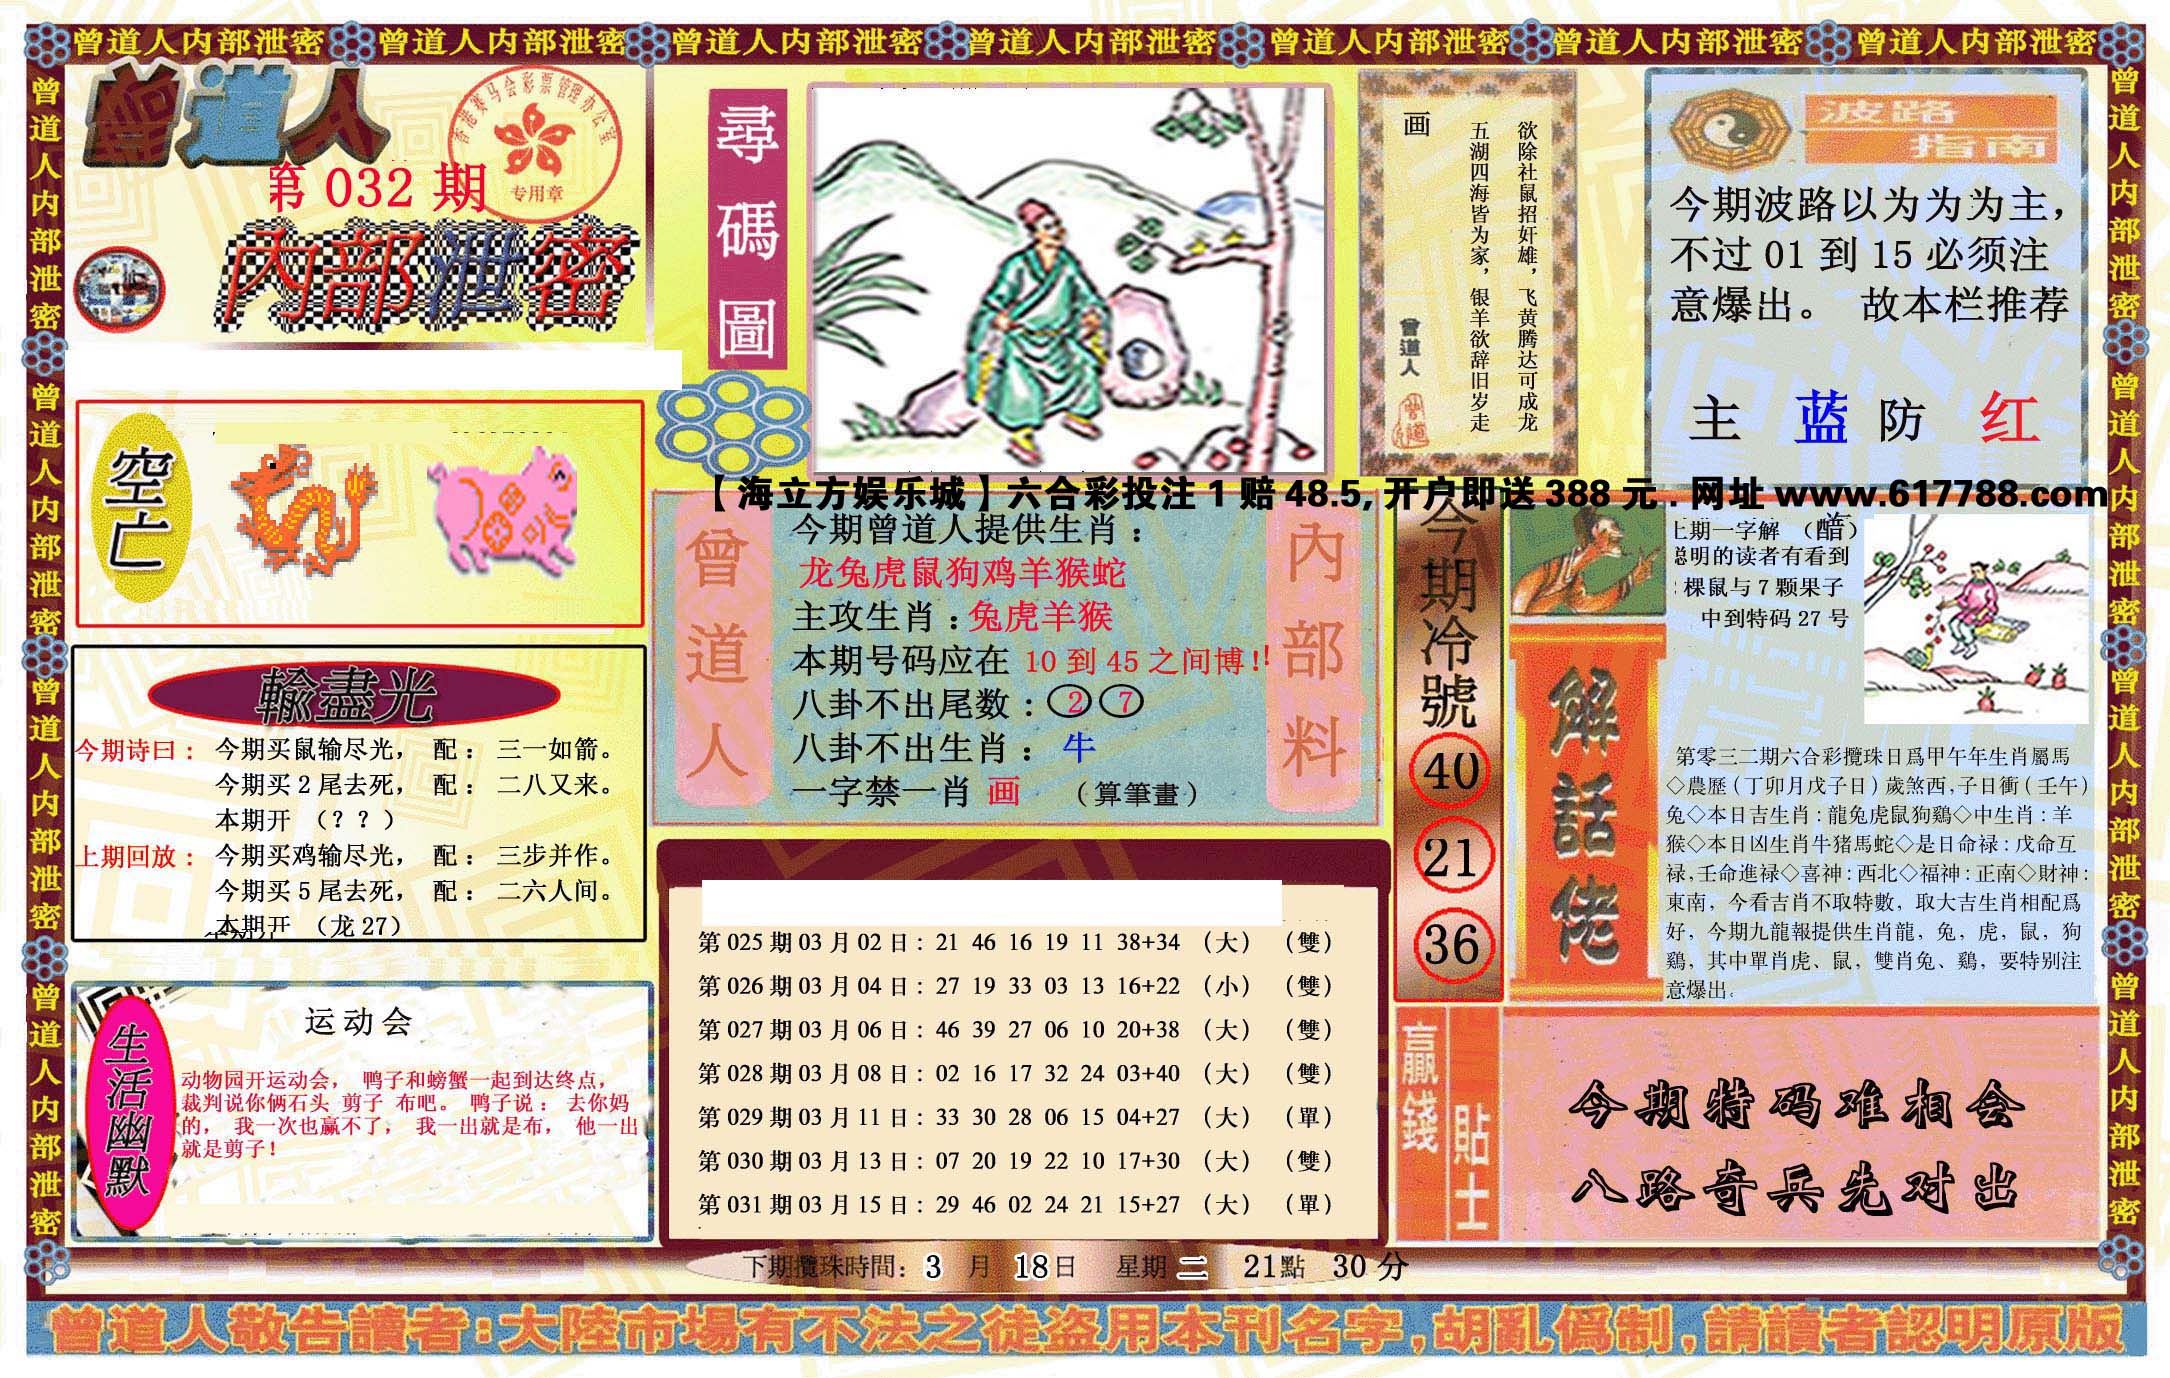 曾道人内部泄密 曾道人内部泄密 曾道人内部泄密 曾道人内部泄密 曾道人内部泄密 曾道人内部泄密 曾道人内部泄密
曾道人内部泄密 曾道人内部泄密 曾道人内部泄密 曾道人内部泄密
曾道人
香港赛马会彩票管理办公室
专用章
第 032 期
内部泄密
空亡
輸盡光
今期诗曰： 今期买鼠输尽光， 配： 三一如箭。
今期买 2 尾去死， 配： 二八又来。
本期开 （？？）
上期回放： 今期买鸡输尽光， 配： 三步并作。
今期买 5 尾去死， 配： 二六人间。
本期开 （龙 27）
生活幽默
运动会
动物园开运动会， 鸭子和螃蟹一起到达终点，
裁判说你俩石头 剪子 布吧。 鸭子说： 去你妈
的， 我一次也赢不了， 我一出就是布， 他一出
就是剪子！
尋碼圖
画
欲除社鼠招奸雄，飞黄腾达可成龙
五湖四海皆为家，银羊欲辞旧岁走
曾道人
波路
指南
今期波路以为为为主，
不过 01 到 15 必须注
意爆出。 故本栏推荐
主 蓝 防 红
【海立方娱乐城】六合彩投注 1 赔 48.5, 开户即送 388 元 . 网址 www.617788.com
曾道人
内部料
今期曾道人提供生肖：
龙兔虎鼠狗鸡羊猴蛇
主攻生肖：兔虎羊猴
本期号码应在 10 到 45 之间博！!
八卦不出尾数：2 7
八卦不出生肖： 牛
一字禁一肖 画 （算筆畫）
第 025 期 03 月 02 日： 21 46 16 19 11 38+34 （大） （雙）
第 026 期 03 月 04 日： 27 19 33 03 13 16+22 （小） （雙）
第 027 期 03 月 06 日： 46 39 27 06 10 20+38 （大） （雙）
第 028 期 03 月 08 日： 02 16 17 32 24 03+40 （大） （雙）
第 029 期 03 月 11 日： 33 30 28 06 15 04+27 （大） （單）
第 030 期 03 月 13 日： 07 20 19 22 10 17+30 （大） （雙）
第 031 期 03 月 15 日： 29 46 02 24 21 15+27 （大） （單）
下期攪珠時間： 3 月 18日 星期 二 21點 30 分
今期冷號
40
21
36
解話佬
上期一字解 （醋）
聪明的读者有看到
棵鼠与 7 颗果子
中到特码 27 号
第零三二期六合彩攪珠日爲甲午年生肖屬馬
◇農歷（丁卯月戊子日）歲煞西,子日衝（壬午）
兔◇本日吉生肖：龍兔虎鼠狗鷄◇中生肖：羊
猴◇本日凶生肖牛猪馬蛇◇是日命禄：戊命互
禄,壬命進禄◇喜神：西北◇福神：正南◇財神：
東南，今看吉肖不取特數，取大吉生肖相配爲
好，今期九龍報提供生肖龍，兔，虎，鼠，狗
鷄，其中單肖虎、鼠，雙肖兔、鷄，要特别注
意爆出。
贏錢貼士
今期特码难相会
八路奇兵先对出
曾道人敬告讀者：大陸市場有不法之徒盜用本刊名字，胡亂僞制，請讀者認明原版